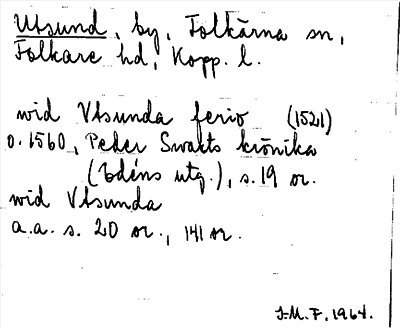 Utsund, by, Folkärna sn,
Folkare hd, Kopp. l.
wid Vtsunda ferio (1521)
o. 1560, Peder Swarts krönika
(Edéns utg.), s. 19 or.
wid Vtsunda
a.a. s. 20 or., 141 or.
I.M.F. 1964.